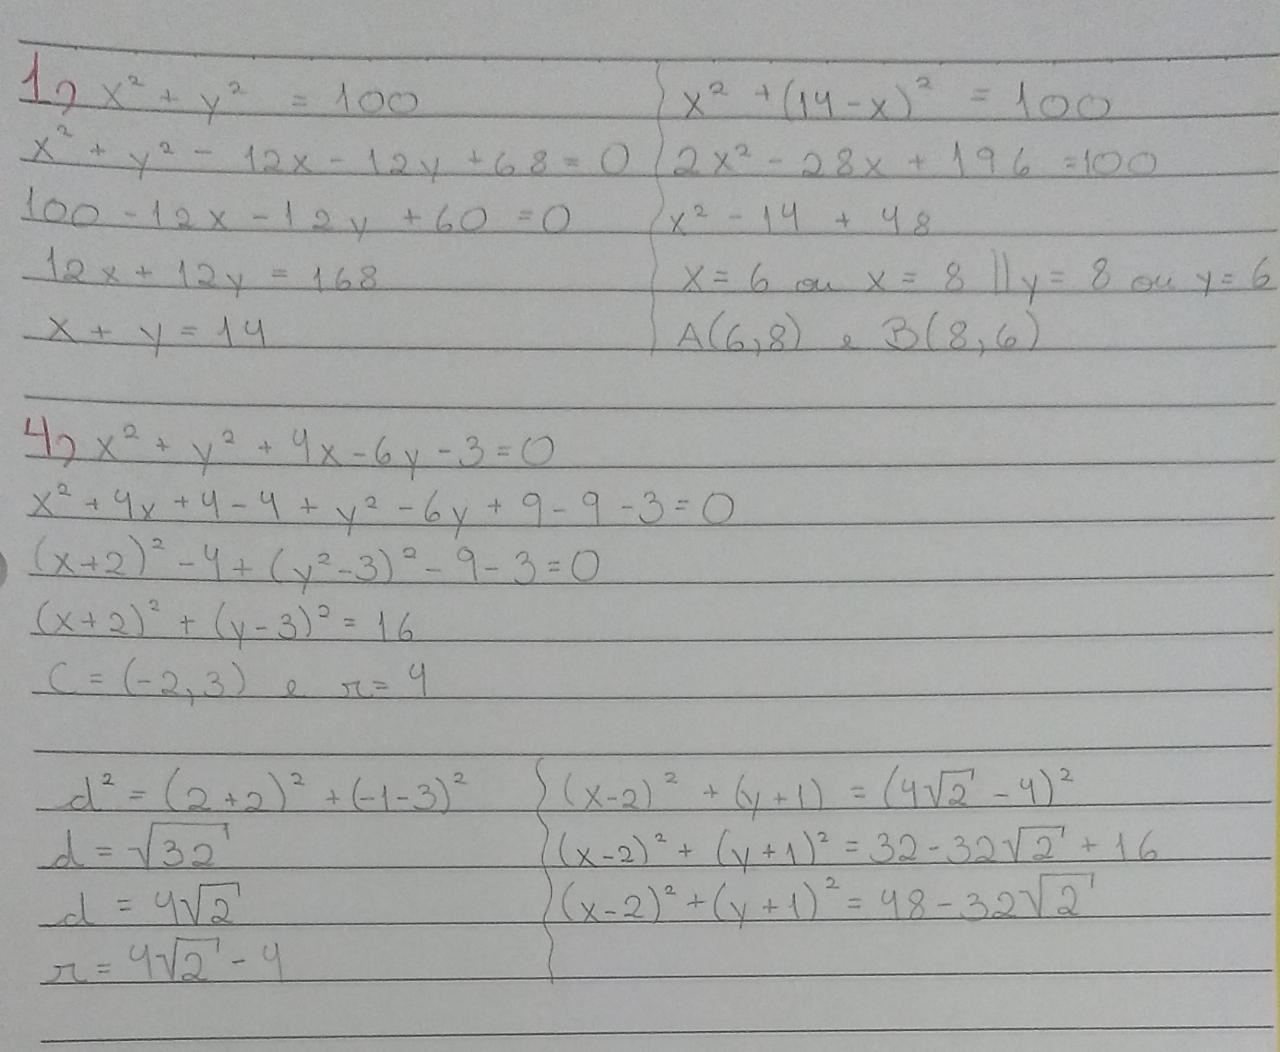 1) x² + y² = 100
x² + y² - 12x - 12y + 68 = 0
100 - 12x - 12y + 60 = 0
12x + 12y = 168
x + y = 14
x² + (14 - x)² = 100
2x² - 28x + 196 = 100
x² - 14 + 48
x = 6 ou x = 8 || y = 8 ou y = 6
A(6,8) e B(8,6)
4) x² + y² + 4x - 6y - 3 = 0
x² + 4x + 4 - 4 + y² - 6y + 9 - 9 - 3 = 0
(x+2)² - 4 + (y² - 3)² - 9 - 3 = 0
(x+2)² + (y-3)² = 16
C = (-2,3) e r = 4
d² = (2+2)² + (-1-3)²
d = √32
d = 4√2
r = 4√2 - 4
(x-2)² + (y+1) = (4√2 - 4)²
(x-2)² + (y+1)² = 32 - 32√2 + 16
(x-2)² + (y+1)² = 48 - 32√2